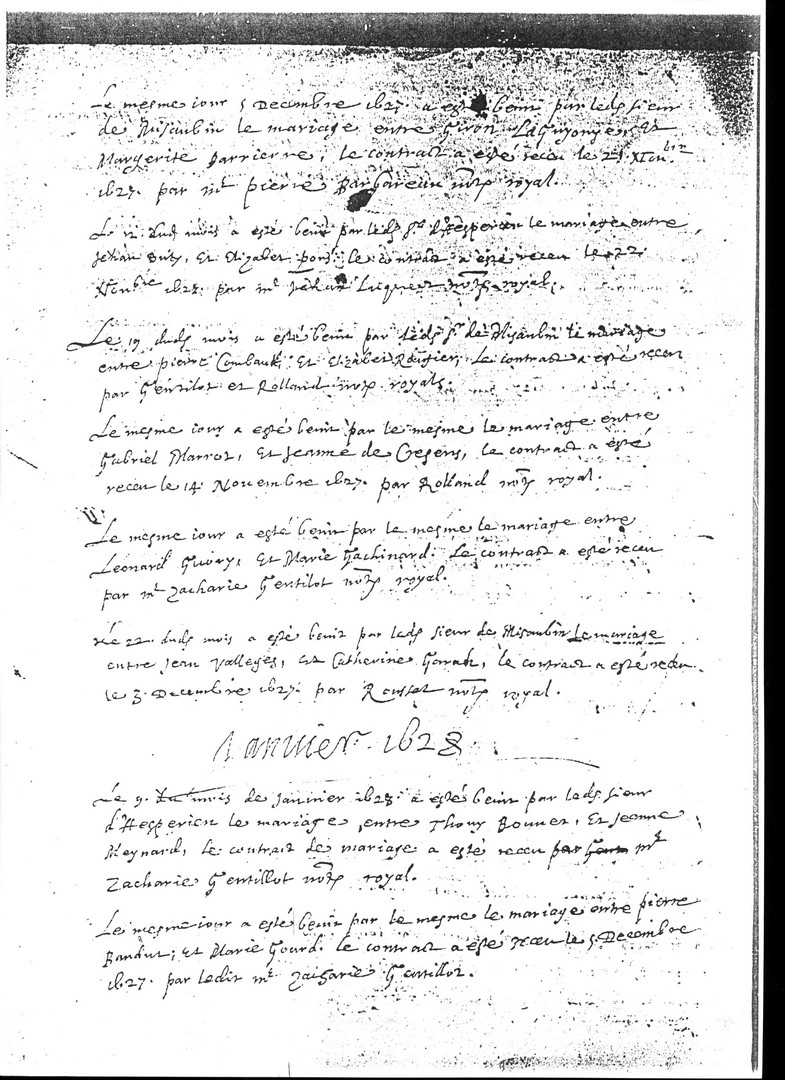 Le mesme iour 5 Decembre 1627 a esté benit par leds sieur
de Misaubin le mariage entre Giron Laguyonye, Et
Margerite Darrierre, le contract a esté receu le 21 XIeu bre
1627. par mr pierre Barbareau nots royal.
Le 12 duds mois a esté benit par leds sr d'Hesperien le mariage entre
Jehan Et Elizabet le contract a esté receu le 22
1627. par mr Luquet nots royal.
Le 19 duds mois a esté benit par leds sr de Misaubin le mariage
entre pierre Combauk, Et Elizabet Rougier, Le contract a esté receu
par Gentilot et Rolland nots royals.
Le mesme iour a esté benit par le mesme le mariage entre
Gabriel Marrot, Et Jeanne de Gegens, le contract a esté
receu le 14 Nouembre 1627. par Rolland nots royal.
Le mesme iour a esté benit par le mesme le mariage entre
Leonard Guory, Et Marie Gachinard. Le contract a esté receu
par mr Zacharie Gentilot nots royal.
Le 22 duds mois a esté benit par leds sieur de Misaubin Le mariage
entre Jean Valleges, Et Catherine Garah, le contract a esté receu
le 3 Decembre 1627. par Rousset nots royal.
Ianuier. 1628
Le 9. mois de Januier 1628 a esté benit par leds sieur
d'Hesperien le mariage entre Thony Bonnet, Et Jeanne
Meynard, le contract de mariage a esté receu par mr
Zacharie Gentillot nots royal.
Le mesme iour a esté benit par le mesme le mariage entre pierre
Bandut, Et Marie Gourd. le contract a esté receu le 5 Decembre
1627. par ledit mr Zacharie Gentillot.